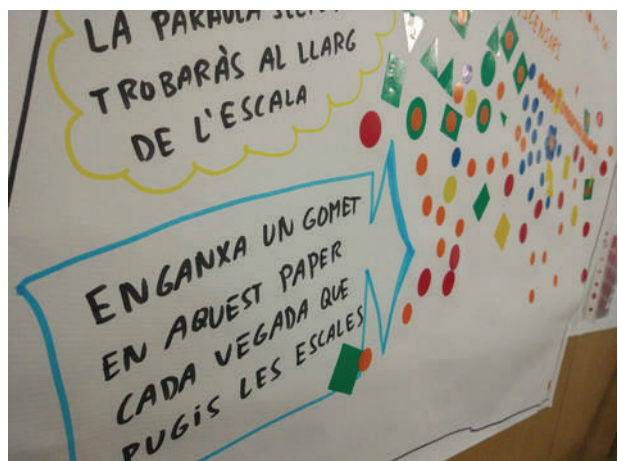 LA PARAULA
TROBARÀS AL LLARG
DE L'ESCALA
ASCENSORS
ENGANXA UN GOMET
EN AQUEST PAPER
CADA VEGADA QUE
PUGIS LES ESCALES